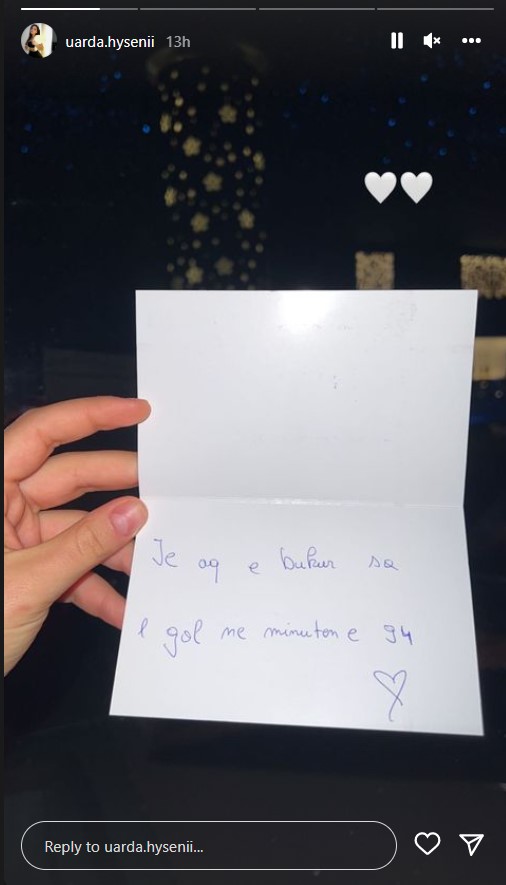 uarda.hysenii 13h
Je aq e bukur sa
1 gol ne minuton e 94
Reply to uarda.hysenii...